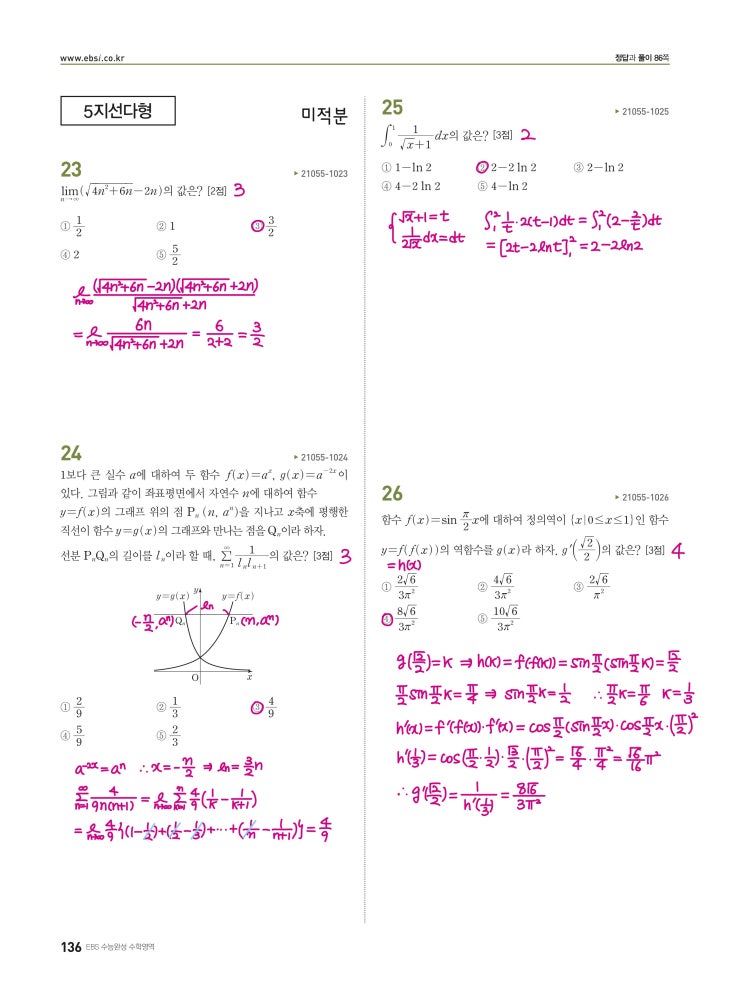 www.ebsi.co.kr
정답과 풀이 86쪽
5지선다형
미적분
23
▶ 21055-1023
lim_{n→∞}(√(4n²+6n)−2n)의 값은? [2점] 3
① 1/2 ② 1 ③ 3/2
④ 2 ⑤ 5/2
lim_{n→∞} (√(4n²+6n)−2n)(√(4n²+6n)+2n) / (√(4n²+6n)+2n)
= lim_{n→∞} 6n/(√(4n²+6n)+2n) = 6/(2+2) = 3/2
24
▶ 21055-1024
1보다 큰 실수 a에 대하여 두 함수 f(x)=aˣ, g(x)=a⁻²ˣ이
있다. 그림과 같이 좌표평면에서 자연수 n에 대하여 함수
y=f(x)의 그래프 위의 점 Pₙ(n, aⁿ)을 지나고 x축에 평행한
직선이 함수 y=g(x)의 그래프와 만나는 점을 Qₙ이라 하자.
선분 PₙQₙ의 길이를 lₙ이라 할 때, Σ_{n=1}^{∞} 1/(lₙlₙ₊₁)의 값은? [3점] 3
y=g(x) y y=f(x)
ln
(-n/2, aⁿ) Qₙ Pₙ (n, aⁿ)
O x
① 2/9 ② 1/3 ③ 4/9
④ 5/9 ⑤ 2/3
a⁻²ˣ=aⁿ ∴x=-n/2 ⇒ ln=3/2 n
Σ_{n=1}^{∞} 4/(9n(n+1)) = lim_{n→∞} Σ_{k=1}^{n} 4/9(1/k − 1/(k+1))
= lim_{n→∞} 4/9{(1-1/2)+(1/2-1/3)+⋯+(1/n-1/(n+1))} = 4/9
25
▶ 21055-1025
∫₀¹ 1/(√x+1) dx의 값은? [3점] 2
① 1−ln 2 ② 2−2 ln 2 ③ 2−ln 2
④ 4−2 ln 2 ⑤ 4−ln 2
√x+1=t ∫₁² 1/t·2(t-1)dt = ∫₁²(2-2/t)dt
1/(2√x) dx=dt = [2t-2lnt]₁² = 2-2ln2
26
▶ 21055-1026
함수 f(x)=sin π/2 x에 대하여 정의역이 {x|0≤x≤1}인 함수
y=f(f(x))의 역함수를 g(x)라 하자. g′(√2/2)의 값은? [3점] 4
=h(x)
① 2√6/3π² ② 4√6/3π² ③ 2√6/π²
④ 8√6/3π² ⑤ 10√6/3π²
g(√2/2)=k ⇒ h(k)=f(f(k))=sin π/2(sin π/2 k)=√2/2
π/2 sin π/2 k=π/4 ⇒ sin π/2 k=1/2 ∴ π/2 k=π/6 k=1/3
h′(x)=f′(f(x))·f′(x)=cos π/2(sin π/2 x)·cos π/2 x·(π/2)²
h′(1/3)=cos(π/2·1/2)·√3/2·(π/2)²=√6/4·π²/4=√6/16 π²
∴ g′(√2/2)=1/h′(1/3)=8√6/3π²
136 EBS 수능완성 수학영역